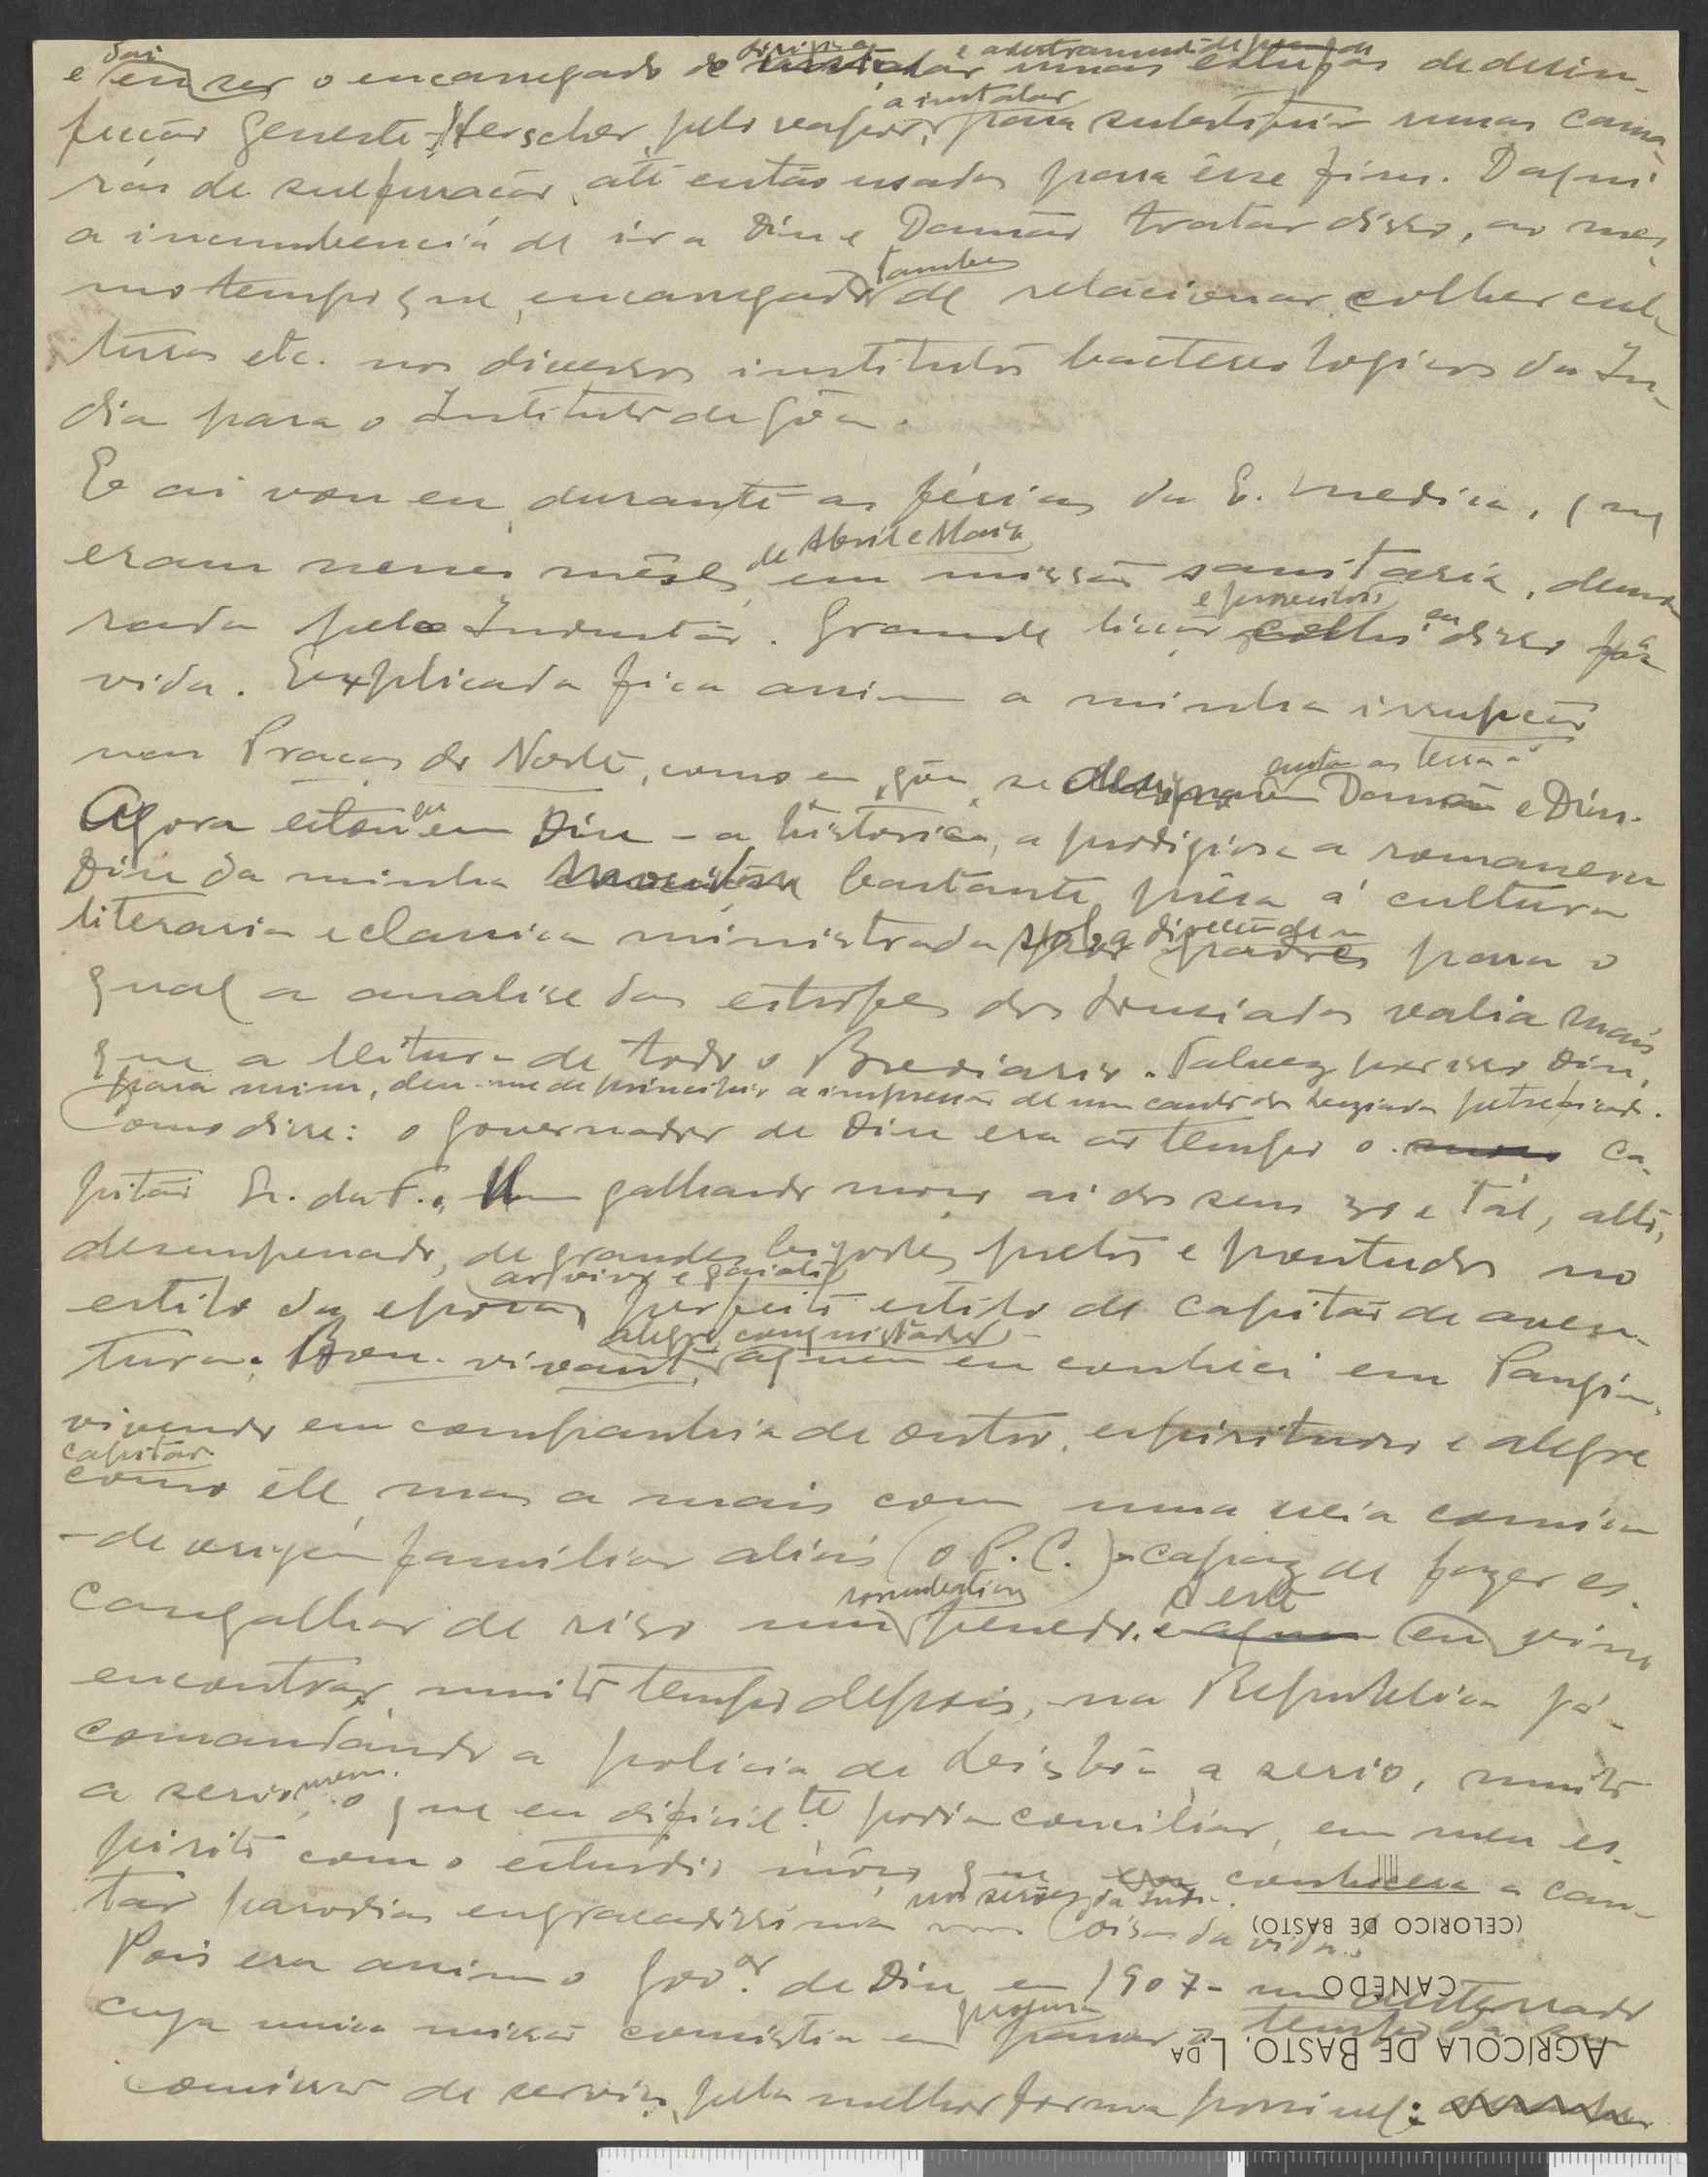 e daí eu ser o encarregado de dirigir a instalar e adestramento de pessoal umas estufas de desin-
fecção Geneste-Herscher, pelo vapor, a instalar para substituir umas cama-
ras de sulfuração, até então usadas para êsse fim. Daqui
a incumbencia de ir a Diu e Damão tratar disso, ao mes-
mo tempo que, encarregado tambem de relacionar, colher cul-
turas etc. nos diversos institutos bacteriologicos da In-
dia para o Instituto de Gôa.
E aí vou eu, durante as férias da E. Medica, que
eram nesses mêses de Abril e Maio, em missão sanitaria, demo-
rada pelo Industão. Grande lição e proveitos colhi eu disso pª a
vida. Explicada fica assim a minha irrupção
nas Praças do Norte, como em Gôa se designavam Damão e Diu.
Agora estou eu em Diu - a historica, a prodigiosa a romanesca
Diu da minha bastante prêsa á cultura
literaria e classica ministrada sob a direcção de padres para o
qual a analise das estrofes dos Lusiadas valia mais
que a leitura de todo o Breviario. Talvez por isso Diu,
para mim, deu-me de principio a impressão de um canto dos Lusiadas petrificado.
Como disse: o governador de Diu era ao tempo o ca-
pitão Sr. da F., Um galhardo moço aí dos seus 30 e tal, alto,
desempenado, de grandes bigodes pretos e pontudos no
estilo da epoca, ar vivo e gaiato perfeito estilo de capitão de aven-
tura. Bon-vivant, alegre, conquistador - a quem eu conheci em Pangim,
vivendo em companhia de outro, espirituoso e alegre
capitão como êle mas a mais com uma veia comica
- de origem familiar aliás (o P. C.) - capaz de fazer es-
cangalhar de riso um sorumbatico penedo. e a quem A este eu vim
encontrar, muito tempo depois, na Republica já
comandando a policia de Lisbôa a serio, muito
a serio mesmo, o que eu dificilte podia conciliar, em meu es-
pirito com o esturdio môço que eu conhecera a can-
tar parodias engraçadissimas nos serões da India. Coisas da vida..
Pois era assim o Govor. de Diu em 1907 - um desterrado
cuja unica missão consistia em passar o tempo da sua
comissão de serviço, pela melhor forma possivel:
AGRICOLA DE BASTO, L.DA
CANEDO
(CELORICO DE BASTO)